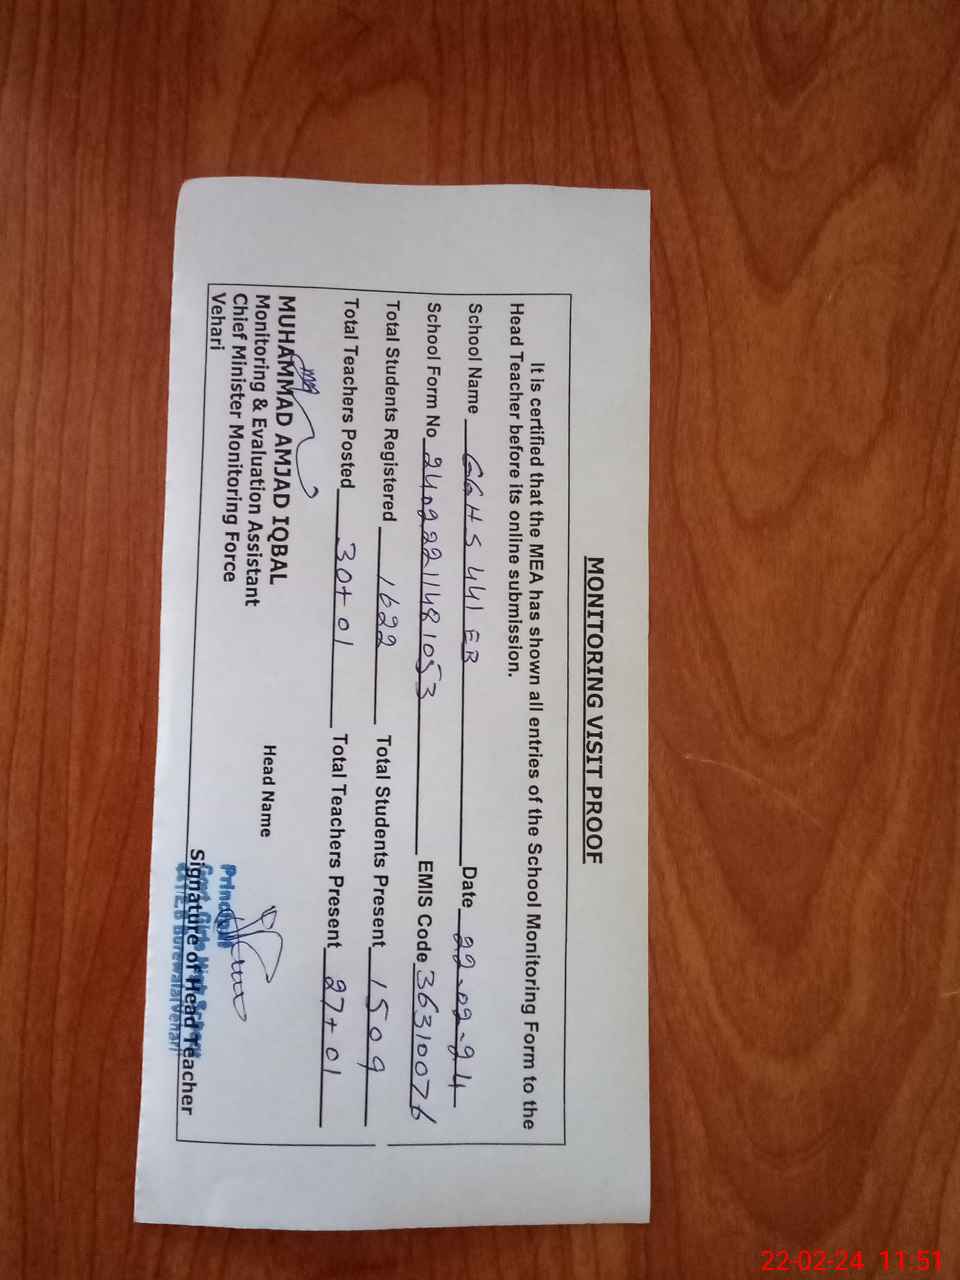 MONITORING VISIT PROOF
It is certified that the MEA has shown all entries of the School Monitoring Form to the
Head Teacher before its online submission.
School Name GGHS 441 EB Date 22-02-24
School Form No 24022211481053 EMIS Code 36310076
Total Students Registered 1622 Total Students Present 1509
Total Teachers Posted 30+01 Total Teachers Present 27+01
MUHAMMAD AMJAD IQBAL
Monitoring & Evaluation Assistant
Chief Minister Monitoring Force
Vehari
Head Name
Principal
Govt. Girls High School
441/E.B Burewala(Vehari)
Signature of Head Teacher
22-02-24 11:51